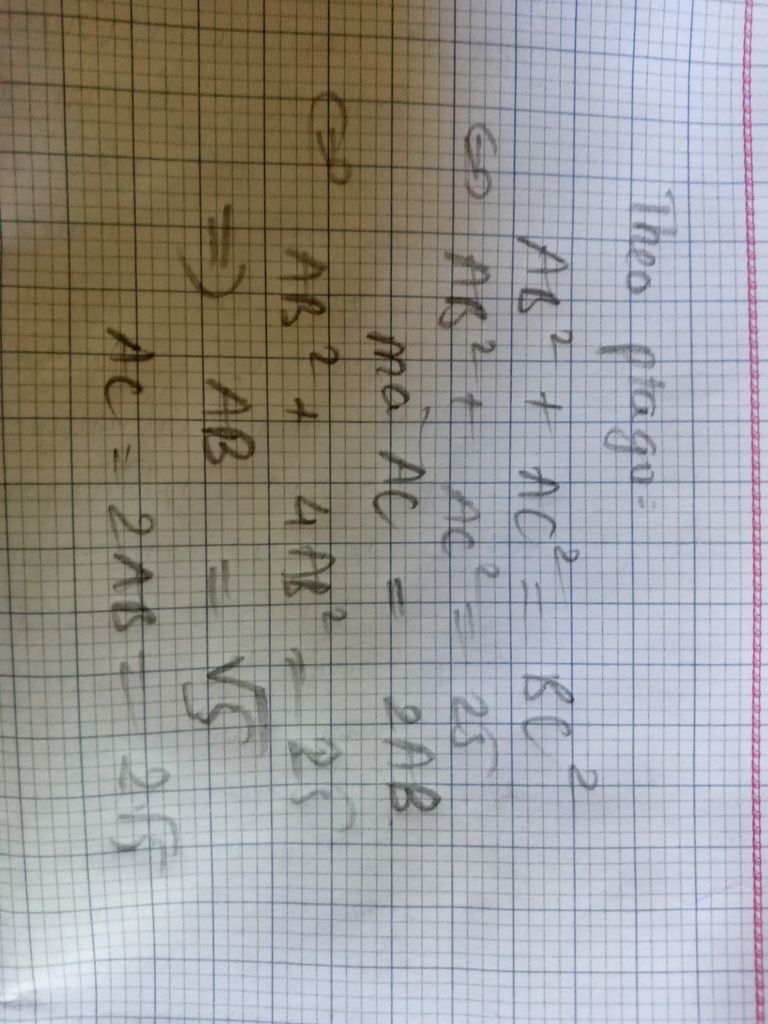 Theo ptago:
AB² + AC² = BC²
⇔ AB² + AC² = 25
mà AC = 2AB
⇔ AB² + 4AB² = 25
⇒ AB = √5
AC = 2AB = 2√5